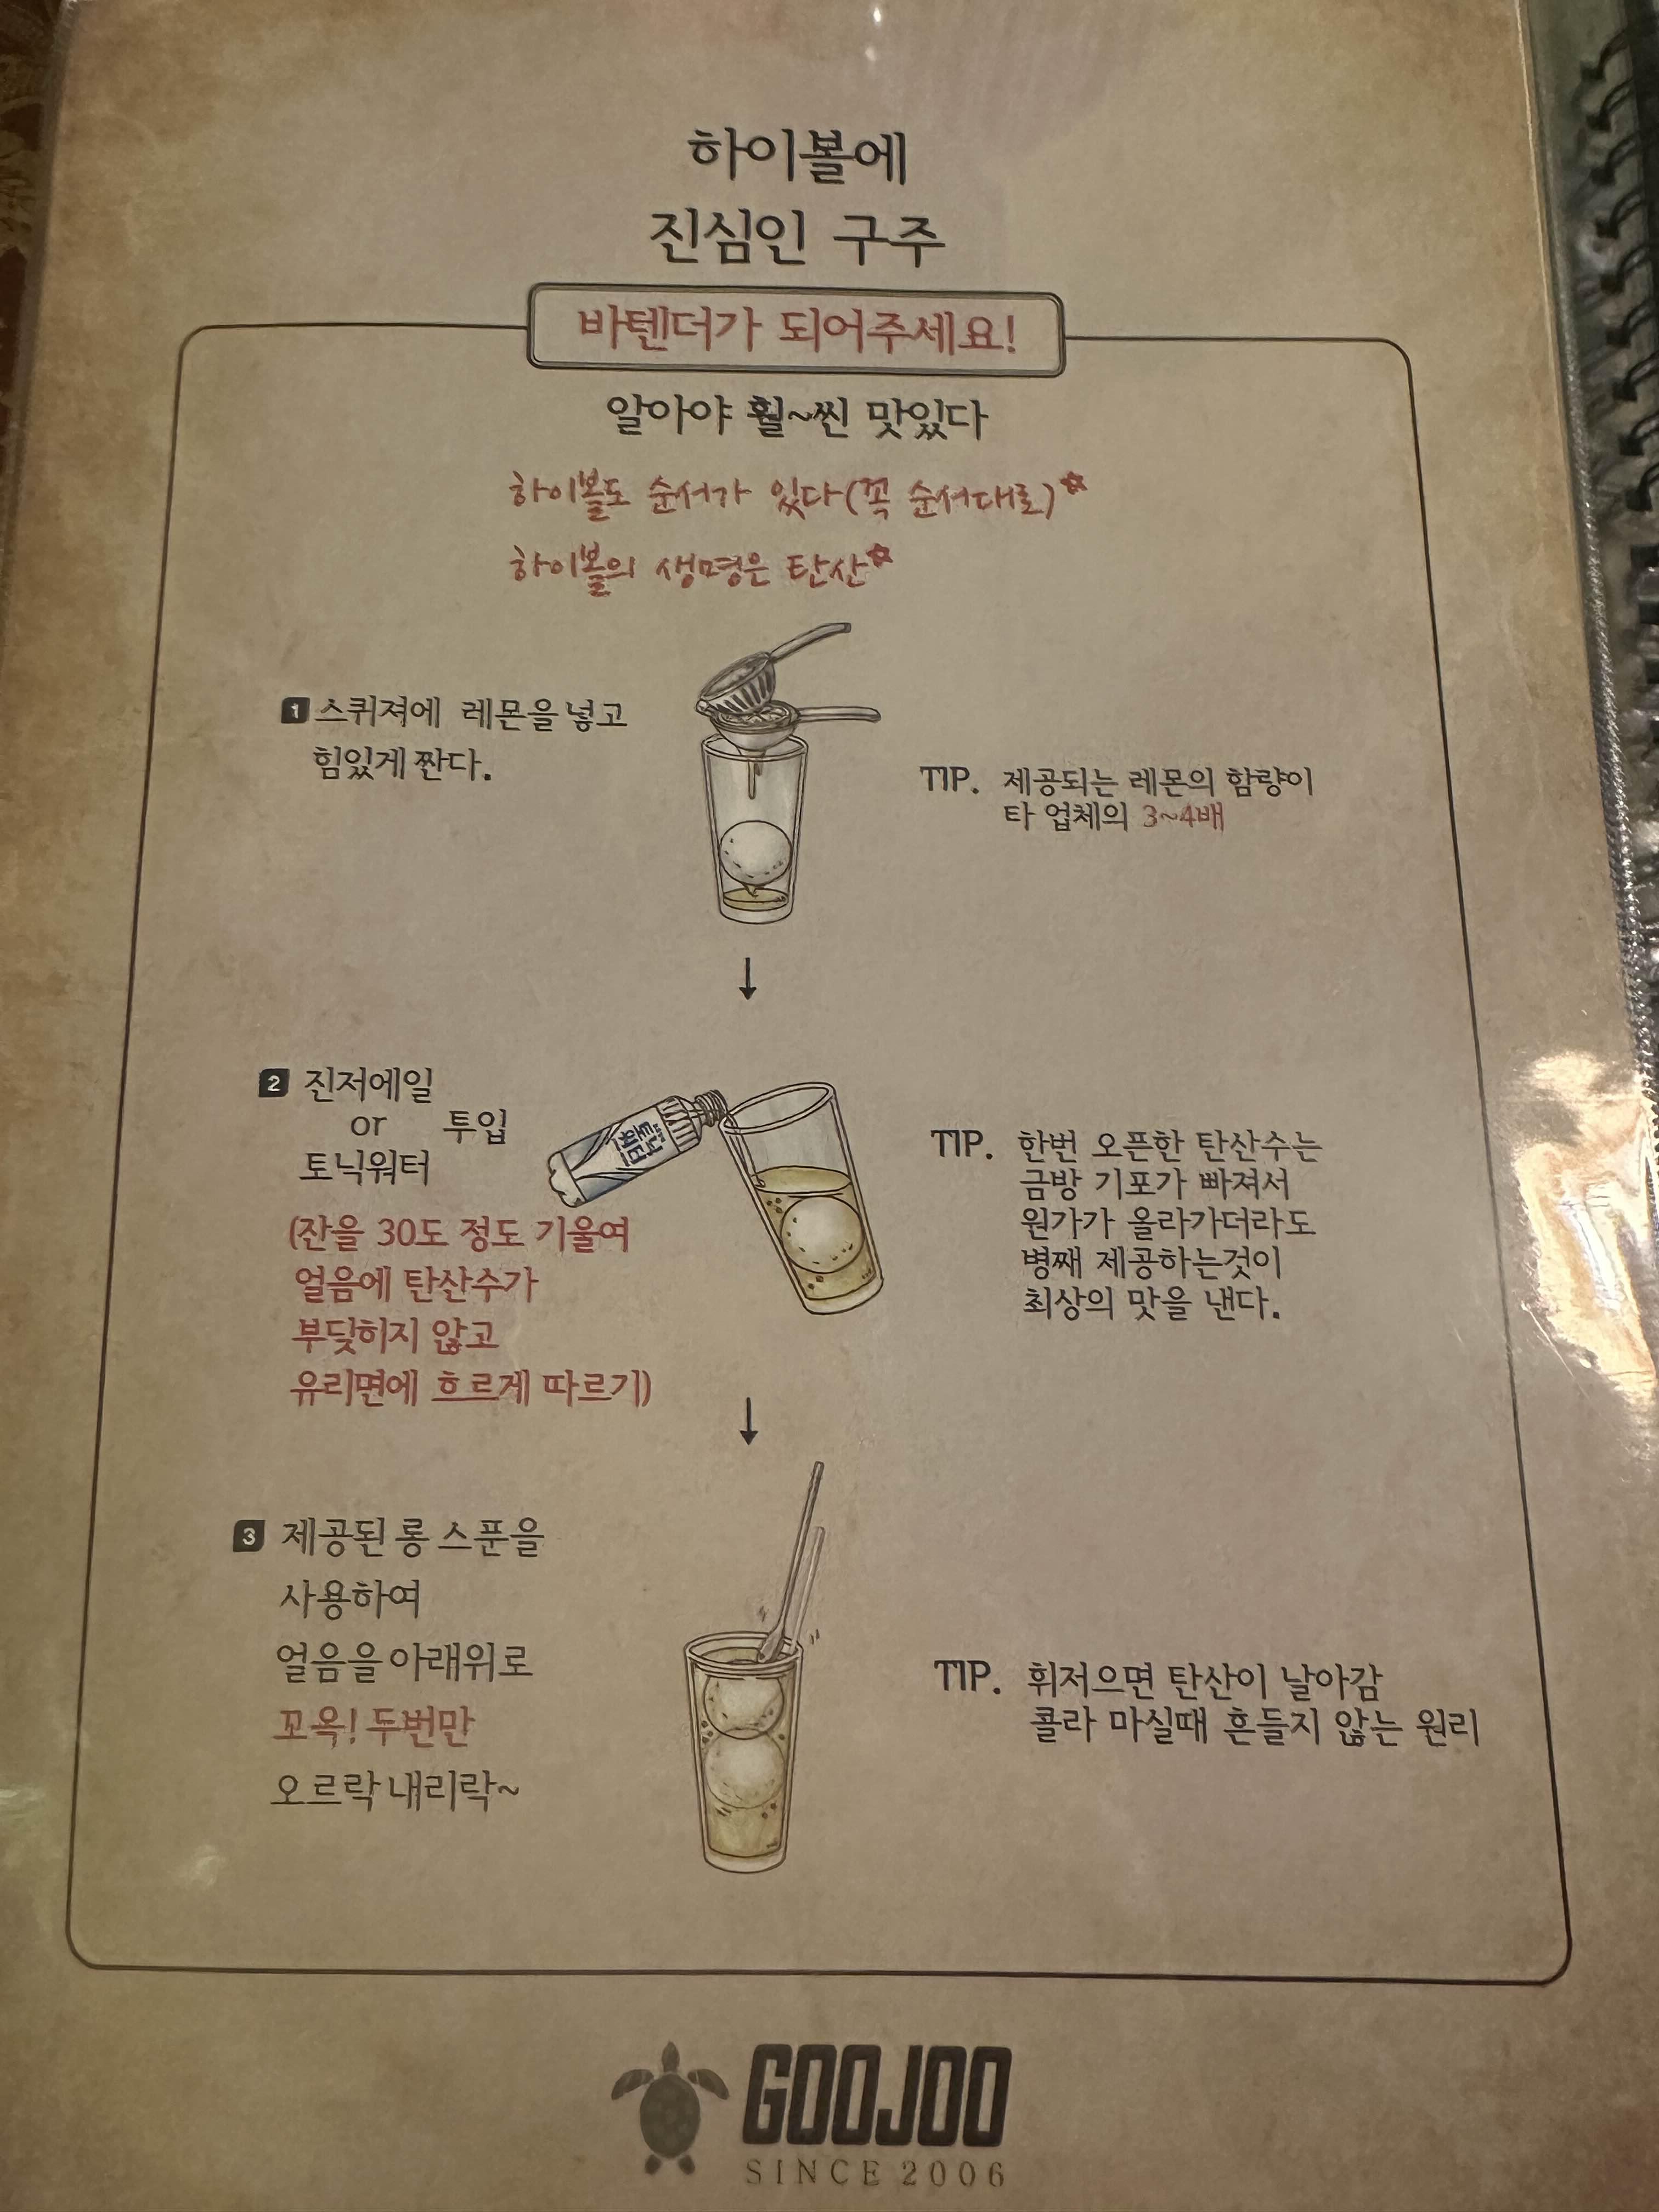 하이볼에
진심인 구주
바텐더가 되어주세요!
알아야 훨~씬 맛있다
하이볼도 순서가 있다(꼭 순서대로)☆
하이볼의 생명은 탄산☆
1 스퀴져에 레몬을 넣고
힘있게 짠다.
TIP. 제공되는 레몬의 함량이
타 업체의 3~4배
2 진저에일
or 투입
토닉워터
(잔을 30도 정도 기울여
얼음에 탄산수가
부딪히지 않고
유리면에 흐르게 따르기)
토닉
워터
TIP. 한번 오픈한 탄산수는
금방 기포가 빠져서
원가가 올라가더라도
병째 제공하는것이
최상의 맛을 낸다.
3 제공된 롱 스푼을
사용하여
얼음을 아래위로
꼬옥! 두번만
오르락 내리락~
TIP. 휘저으면 탄산이 날아감
콜라 마실때 흔들지 않는 원리
GOOJOO
SINCE 2006